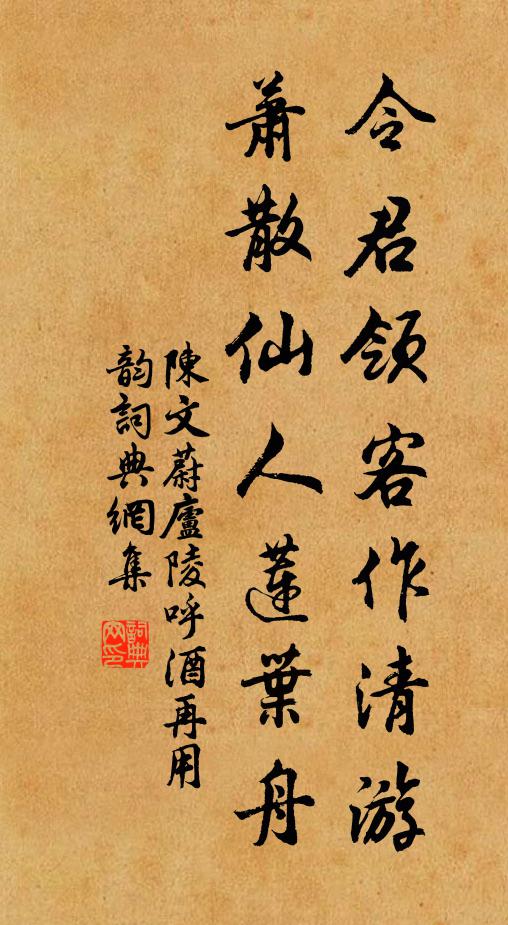 令君領客作清游
蕭散仙人蓮葉舟
陳文蔚廬陵呼酒再用
韵詞典網集
詞典
网印